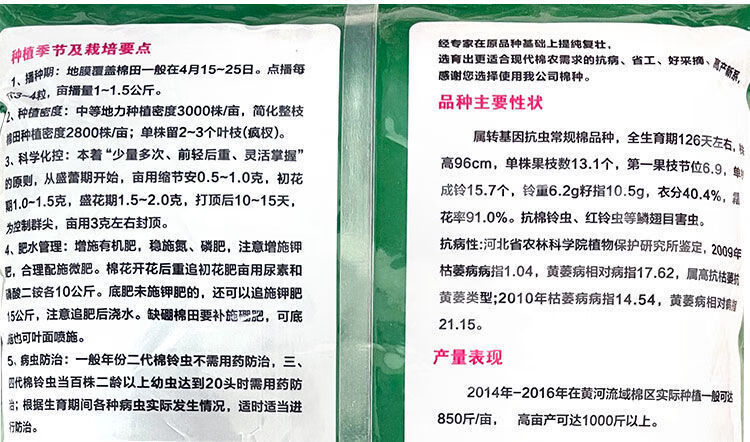 种植季节及栽培要点
1、播种期：地膜覆盖棉田一般在4月15~25日。点播每
3~4粒，亩播量1~1.5公斤。
2、种植密度：中等地力种植密度3000株/亩，简化整枝
棉田种植密度2800株/亩；单株留2~3个叶枝(疯杈)。
3、科学化控：本着“少量多次、前轻后重、灵活掌握”
的原则，从盛蕾期开始，亩用缩节安0.5~1.0克，初花
期1.0~1.5克，盛花期1.5~2.0克，打顶后10~15天，
为控制群尖，亩用3克左右封顶。
4、肥水管理：增施有机肥，稳施氮、磷肥，注意增施钾
肥，合理配施微肥。棉花开花后重追初花肥亩用尿素和
磷酸二铵各10公斤。底肥未施钾肥的，还可以追施钾肥
15公斤，注意追肥后浇水。缺硼棉田要补施硼肥，可底
施也可叶面喷施。
5、病虫防治：一般年份二代棉铃虫不需用药防治，三、
四代棉铃虫当百株二龄以上幼虫达到20头时需用药防
治；根据生育期间各种病虫实际发生情况，适时适当进
行防治。
经专家在原品种基础上提纯复壮，
选育出更适合现代棉农需求的抗病、省工、好采摘、高产新系，
感谢您选择使用我公司棉种。
品种主要性状
属转基因抗虫常规棉品种，全生育期126天左右，株
高96cm，单株果枝数13.1个，第一果枝节位6.9，单株
成铃15.7个，铃重6.2g籽指10.5g，衣分40.4%，霜前
花率91.0%。抗棉铃虫、红铃虫等鳞翅目害虫。
抗病性:河北省农林科学院植物保护研究所鉴定，2009年
枯萎病病指1.04，黄萎病相对病指17.62，属高抗枯萎抗
黄萎类型;2010年枯萎病病指14.54，黄萎病相对病指
21.15。
产量表现
2014年-2016年在黄河流域棉区实际种植一般可达
850斤/亩， 高亩产可达1000斤以上。